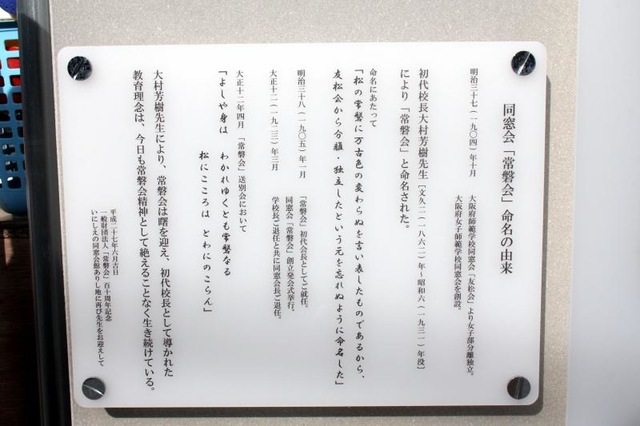 同窓会「常磐会」命名の由来
明治三十七（一九〇四）年十月
大阪府師範学校同窓会「友松会」より女子部分離独立。
大阪府女子師範学校同窓会を創設。
初代校長大村芳樹先生［文久二（一八六二）年～昭和六（一九三一）年没］
により「常磐会」と命名された。
命名にあたって
「松の常磐に万古色の変わらぬを言い表したものであるから、
友松会から分離・独立したという元を忘れぬように命名した」
明治三十八（一九〇五）年一月
「常磐会」初代会長としてご就任。
同窓会「常磐会」創立発会式挙行。
大正十二（一九二三）年三月
学校長ご退任と共に同窓会長ご退任。
大正十二年四月「常磐会」送別会において
「よしや身は　わかれゆくとも常磐なる
松にこころは　とわにのこらん」
大村芳樹先生により、常磐会は曙を迎え、初代校長として導かれた
教育理念は、今日も常磐会精神として絶えることなく生き続けている。
平成二十七年六月吉日
一般財団法人「常磐会」百十周年記念
いにしえの同窓会館ありし地に再び先生をお迎えして